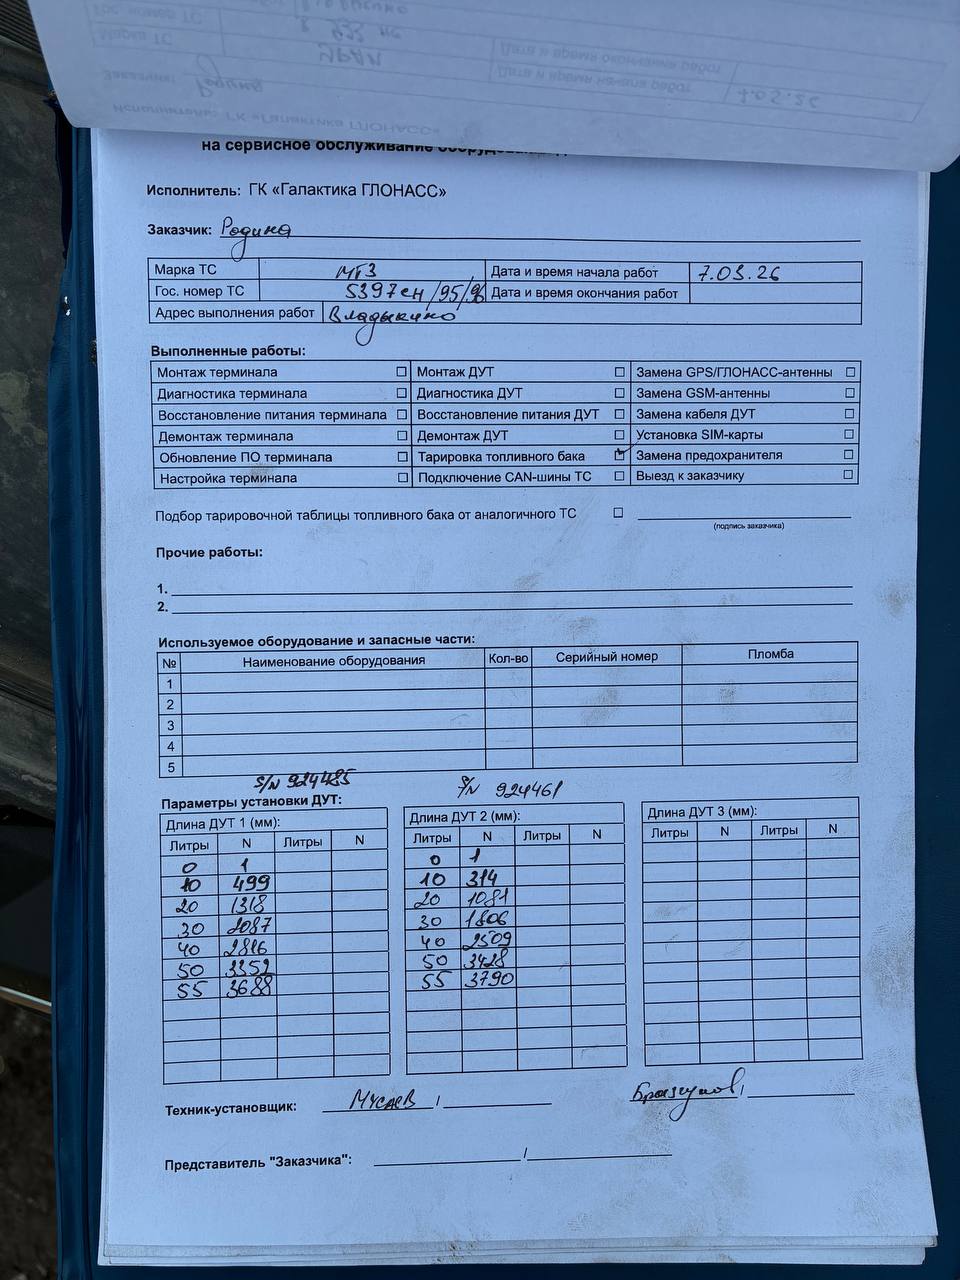 на сервисное обслуживание
Исполнитель: ГК «Галактика ГЛОНАСС»
Заказчик: Родина
Марка ТС МТЗ Дата и время начала работ 7.03.26
Гос. номер ТС 5397ен/95/96 Дата и время окончания работ
Адрес выполнения работ Владыкино
Выполненные работы:
Монтаж терминала ☐ Монтаж ДУТ ☐ Замена GPS/ГЛОНАСС-антенны ☐
Диагностика терминала ☐ Диагностика ДУТ ☐ Замена GSM-антенны ☐
Восстановление питания терминала ☐ Восстановление питания ДУТ ☐ Замена кабеля ДУТ ☐
Демонтаж терминала ☐ Демонтаж ДУТ ☐ Установка SIM-карты ☐
Обновление ПО терминала ☐ Тарировка топливного бака ☑ Замена предохранителя ☐
Настройка терминала ☐ Подключение CAN-шины ТС ☐ Выезд к заказчику ☐
Подбор тарировочной таблицы топливного бака от аналогичного ТС ☐
(подпись заказчика)
Прочие работы:
1.
2.
Используемое оборудование и запасные части:
№ Наименование оборудования Кол-во Серийный номер Пломба
1
2
3
4
5
S/N 924485 S/N 924461
Параметры установки ДУТ:
Длина ДУТ 1 (мм): Длина ДУТ 2 (мм): Длина ДУТ 3 (мм):
Литры N Литры N Литры N Литры N Литры N Литры N
0 1 0 1
10 499 10 314
20 1318 20 1081
30 2087 30 1806
40 2816 40 2509
50 3352 50 3428
55 3688 55 3790
Техник-установщик: Мусаев /
Представитель "Заказчика": /